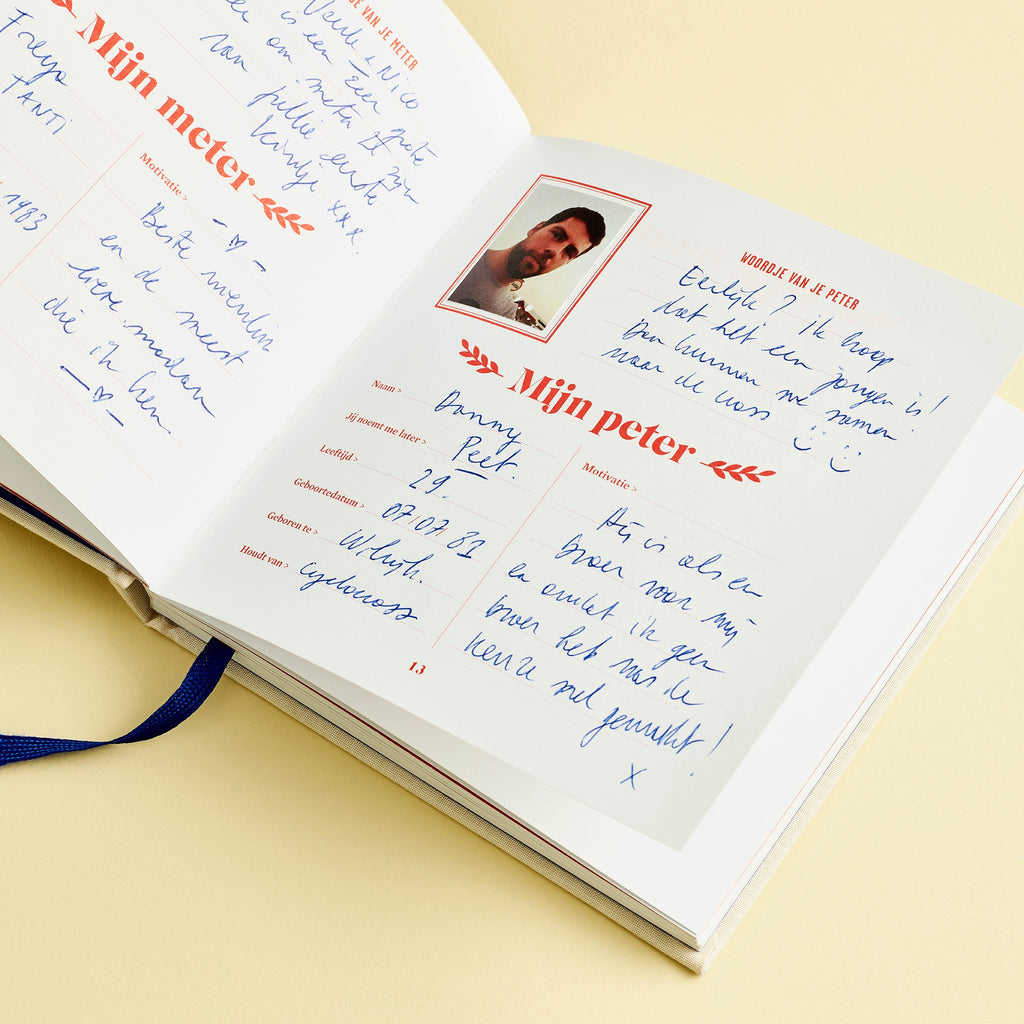 JE VAN JE METER
Veerle & Nico
is een Eer
om meter te zijn
van jullie eerste
kindje xxx
Mijn meter
Freya
TANTI
1983
Motivatie >
Beste vriendin
en de meest
lieve madam
die ik ken.
WOORDJE VAN JE PETER
Eerlijk? ik hoop
dat het een jongen is!
Dan kunnen we samen
naar de cross
Mijn peter
Naam > Danny
Jij noemt me later > Peet.
Leeftijd > 29.
Geboortedatum > 07/07/81
Geboren te > Wilrijk.
Houdt van > cyclocross
Motivatie >
Hij is als en
broer voor mij
en omdat ik geen
broer heb was de
keuze snel gemaakt!
x
13